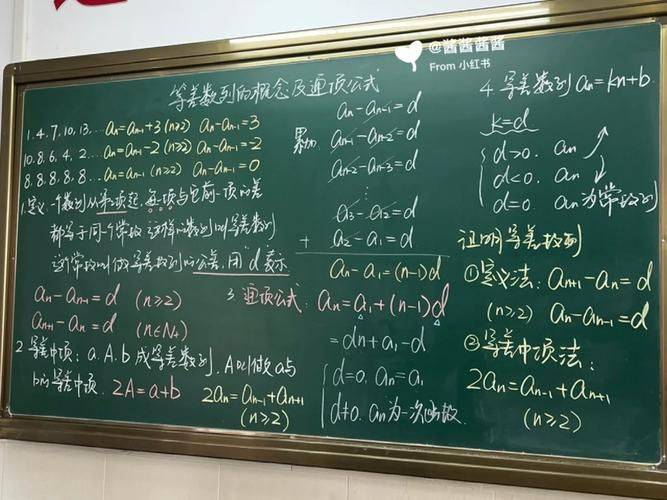 @酱酱酱酱
From 小红书
等差数列的概念及通项公式
1.4.7.10.13.… aₙ=aₙ₋₁+3 (n≥2) aₙ-aₙ₋₁=3
10.8.6.4.2.… aₙ=aₙ₋₁-2 (n≥2) aₙ-aₙ₋₁=-2
8.8.8.8.8… aₙ=aₙ₋₁ (n≥2) aₙ-aₙ₋₁=0
1.定义:一个数列从第2项起,每一项与它前一项的差
都等于同一个常数,这样的数列叫等差数列
这个常数叫做等差数列的公差,用"d"表示
aₙ-aₙ₋₁=d (n≥2)
aₙ₊₁-aₙ=d (n∈N₊)
2.等差中项:a.A.b成等差数列,A叫做a与
b的等差中项. 2A=a+b 2aₙ=aₙ₋₁+aₙ₊₁
(n≥2)
累加
aₙ-aₙ₋₁=d
aₙ₋₁-aₙ₋₂=d
aₙ₋₂-aₙ₋₃=d
⋮
a₃-a₂=d
+ a₂-a₁=d
aₙ-a₁=(n-1)d
3.通项公式:aₙ=a₁+(n-1)d
=dn+a₁-d
{ d=0. aₙ=a₁
d≠0. aₙ为一次函数.
4.等差数列aₙ=kn+b
k=d
{ d>0. aₙ ↗
d<0. aₙ ↘
d=0. aₙ为常数列
证明等差数列
①定义法:aₙ₊₁-aₙ=d
(n≥2) aₙ-aₙ₋₁=d
②等差中项法:
2aₙ=aₙ₋₁+aₙ₊₁
(n≥2)